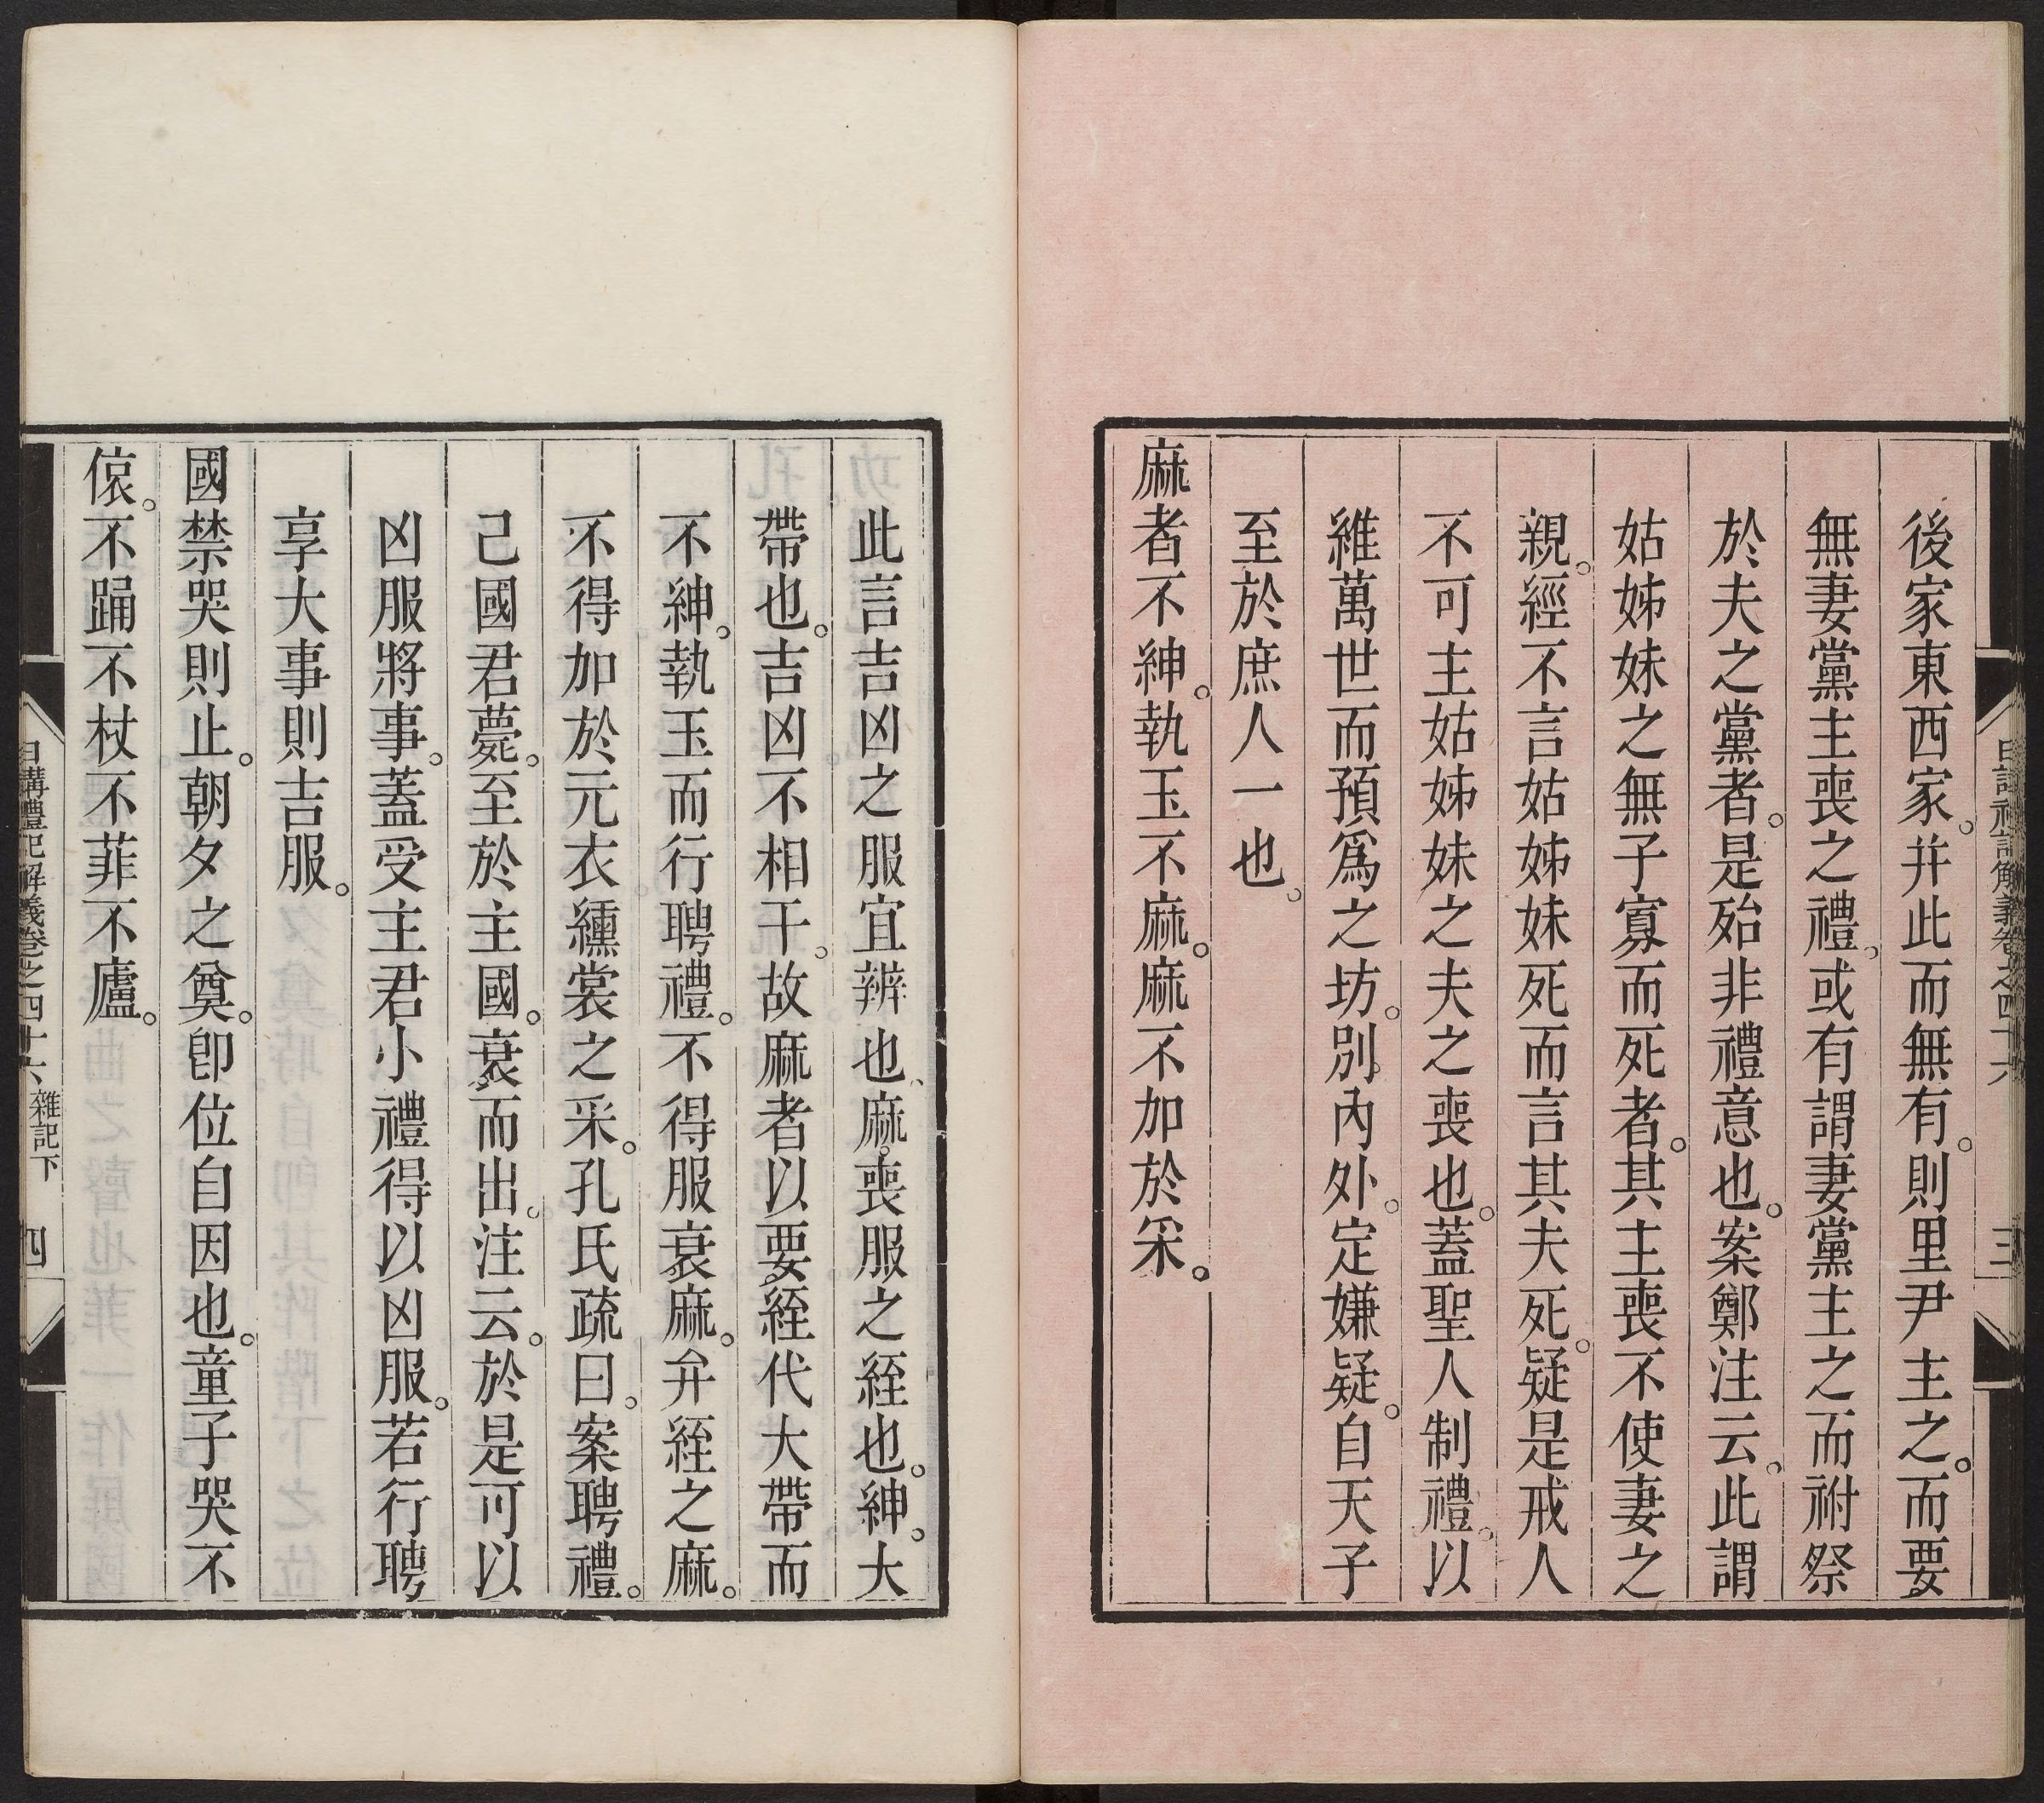 後家東西家。并此而無有。則里尹主之。而要
無妻黨主喪之禮。或有謂妻黨主之而祔祭
於夫之黨者。是殆非禮意也。案鄭注云。此謂
姑姊妹之無子寡而死者。其主喪不使妻之
親。經不言姑姊妹死而言其夫死。疑是戒人
不可主姑姊妹之夫之喪也。蓋聖人制禮。以
維萬世而預爲之坊。別內外。定嫌疑。自天子
至於庶人一也。
麻者不紳。執玉不麻。麻不加於采。
日講禮記解義卷之四十六 三
此言吉凶之服宜辨也、麻。喪服之絰也。紳。大
帶也。吉凶不相干。故麻者以要絰代大帶而
不紳。執玉而行聘禮。不得服衰麻。弁絰之麻。
不得加於元衣纁裳之采。孔氏疏曰。案聘禮。
己國君薨。至於主國。衰而出。注云。於是可以
凶服將事。蓋受主君小禮得以凶服。若行聘
享大事則吉服。
國禁哭則止。朝夕之奠。卽位自因也。童子哭不
偯。不踊不杖不菲不廬。
日講禮記解義卷之四十六 雜記下 四